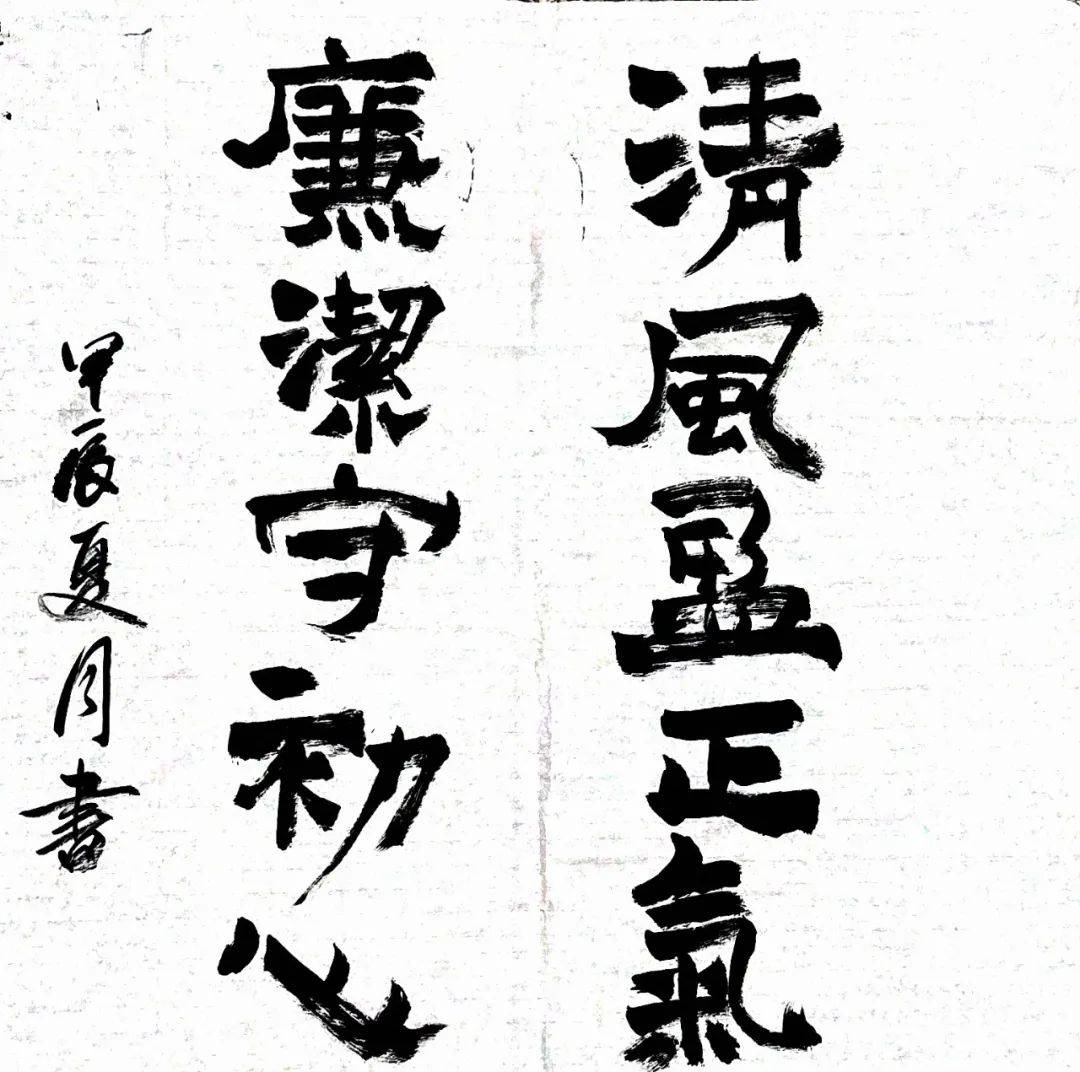 清風盈正氣
廉潔守初心
甲辰夏月書